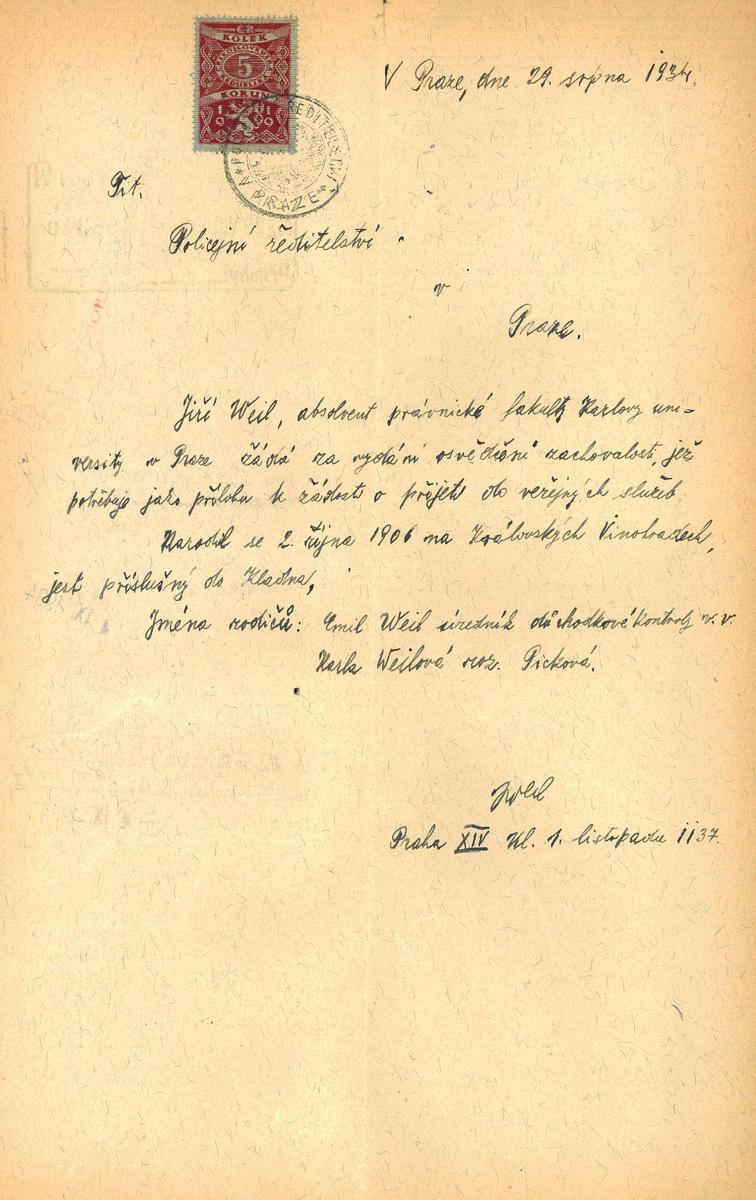 KOLEK
5
KORUN
1919
V PRAZE
V Praze, dne 29. srpna 1934.
Tit.
Policejní ředitelství
v
Praze.
Jiří Weil, absolvent právnické fakulty Karlovy uni-
versity v Praze žádá za vydání osvědčení zachovalosti, jež
potřebuje jako přílohu k žádosti o přijetí do veřejných služeb
Narodil se 2. října 1906 na Královských Vinohradech,
jest příslušný do Kladna,
Jména rodičů: Emil Weil úředník důchodkové kontroly v.v.
Karla Weilová roz. Picková.
Praha XIV Ul. 1. listopadu 1137.